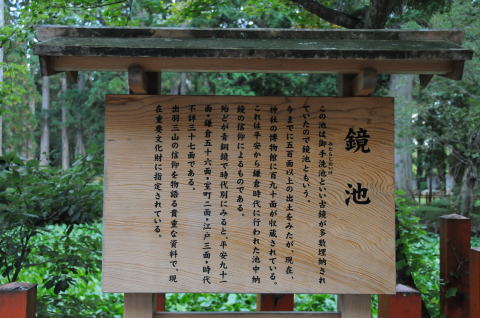 鏡池
この池は御手洗池といい古鏡が多数埋納され
みたらしのいけ
ていたので鏡池ともいう。
今までに五百面以上の出土をみたが、現在、
神社の博物館に百九十面が収蔵されている。
これは平安から鎌倉時代に行われた池中納
鏡の信仰によるものである。
殆どが青銅鏡で時代別にみると、平安九十一
面・鎌倉五十六面・室町二面・江戸三面・時代
不詳三十七面である。
出羽三山の信仰を物語る貴重な資料で、現
在重要文化財に指定されている。